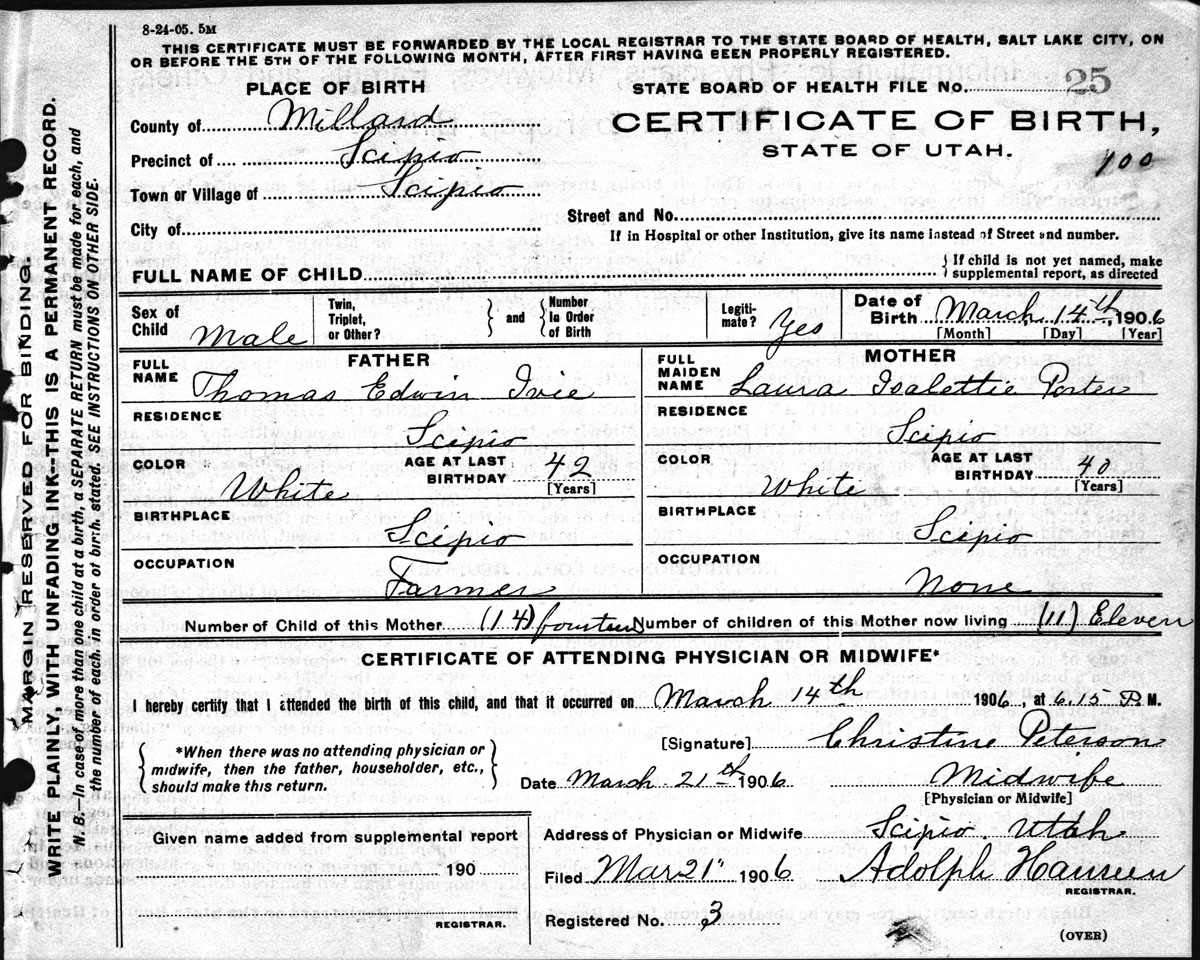 8-24-05. 5M
THIS CERTIFICATE MUST BE FORWARDED BY THE LOCAL REGISTRAR TO THE STATE BOARD OF HEALTH, SALT LAKE CITY, ON
OR BEFORE THE 5TH OF THE FOLLOWING MONTH, AFTER FIRST HAVING BEEN PROPERLY REGISTERED.
PLACE OF BIRTH
STATE BOARD OF HEALTH FILE NO. 25
County of Millard
CERTIFICATE OF BIRTH,
STATE OF UTAH.
100
Precinct of Scipio
Town or Village of Scipio
Street and No.
City of
If in Hospital or other Institution, give its name instead of Street and number.
FULL NAME OF CHILD
{ If child is not yet named, make
supplemental report, as directed
Sex of Child Male
Twin, Triplet, or Other?
} and {
Number In Order of Birth
Legiti-mate? Yes
Date of Birth March 14th, 1906
[Month] [Day] [Year]
FATHER
FULL NAME Thomas Edwin Ivie
RESIDENCE
Scipio
COLOR White
AGE AT LAST BIRTHDAY 42
[Years]
BIRTHPLACE
Scipio
OCCUPATION
Farmer
MOTHER
FULL MAIDEN NAME Laura Isalettie Porter
RESIDENCE
Scipio
COLOR White
AGE AT LAST BIRTHDAY 40
[Years]
BIRTHPLACE
Scipio
OCCUPATION
None
Number of Child of this Mother (14) fourteen Number of children of this Mother now living (11) Eleven
CERTIFICATE OF ATTENDING PHYSICIAN OR MIDWIFE*
I hereby certify that I attended the birth of this child, and that it occurred on March 14th 1906, at 6.15 P. M.
{ *When there was no attending physician or
midwife, then the father, householder, etc.,
should make this return. }
[Signature] Christine Peterson
Date March 21th 1906 Midwife
[Physician or Midwife]
Given name added from supplemental report
190
REGISTRAR.
Address of Physician or Midwife Scipio. Utah
Filed Mar 21" 1906 Adolph Hanseen
REGISTRAR.
Registered No. 3
(OVER)
MARGIN RESERVED FOR BINDING
WRITE PLAINLY, WITH UNFADING INK--THIS IS A PERMANENT RECORD.
N. B.—In case of more than one child at a birth, a SEPARATE RETURN must be made for each, and
the number of each, in order of birth, stated. SEE INSTRUCTIONS ON OTHER SIDE.